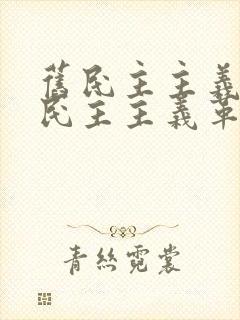 舊民主主義
民主主義革
青絲霓裳